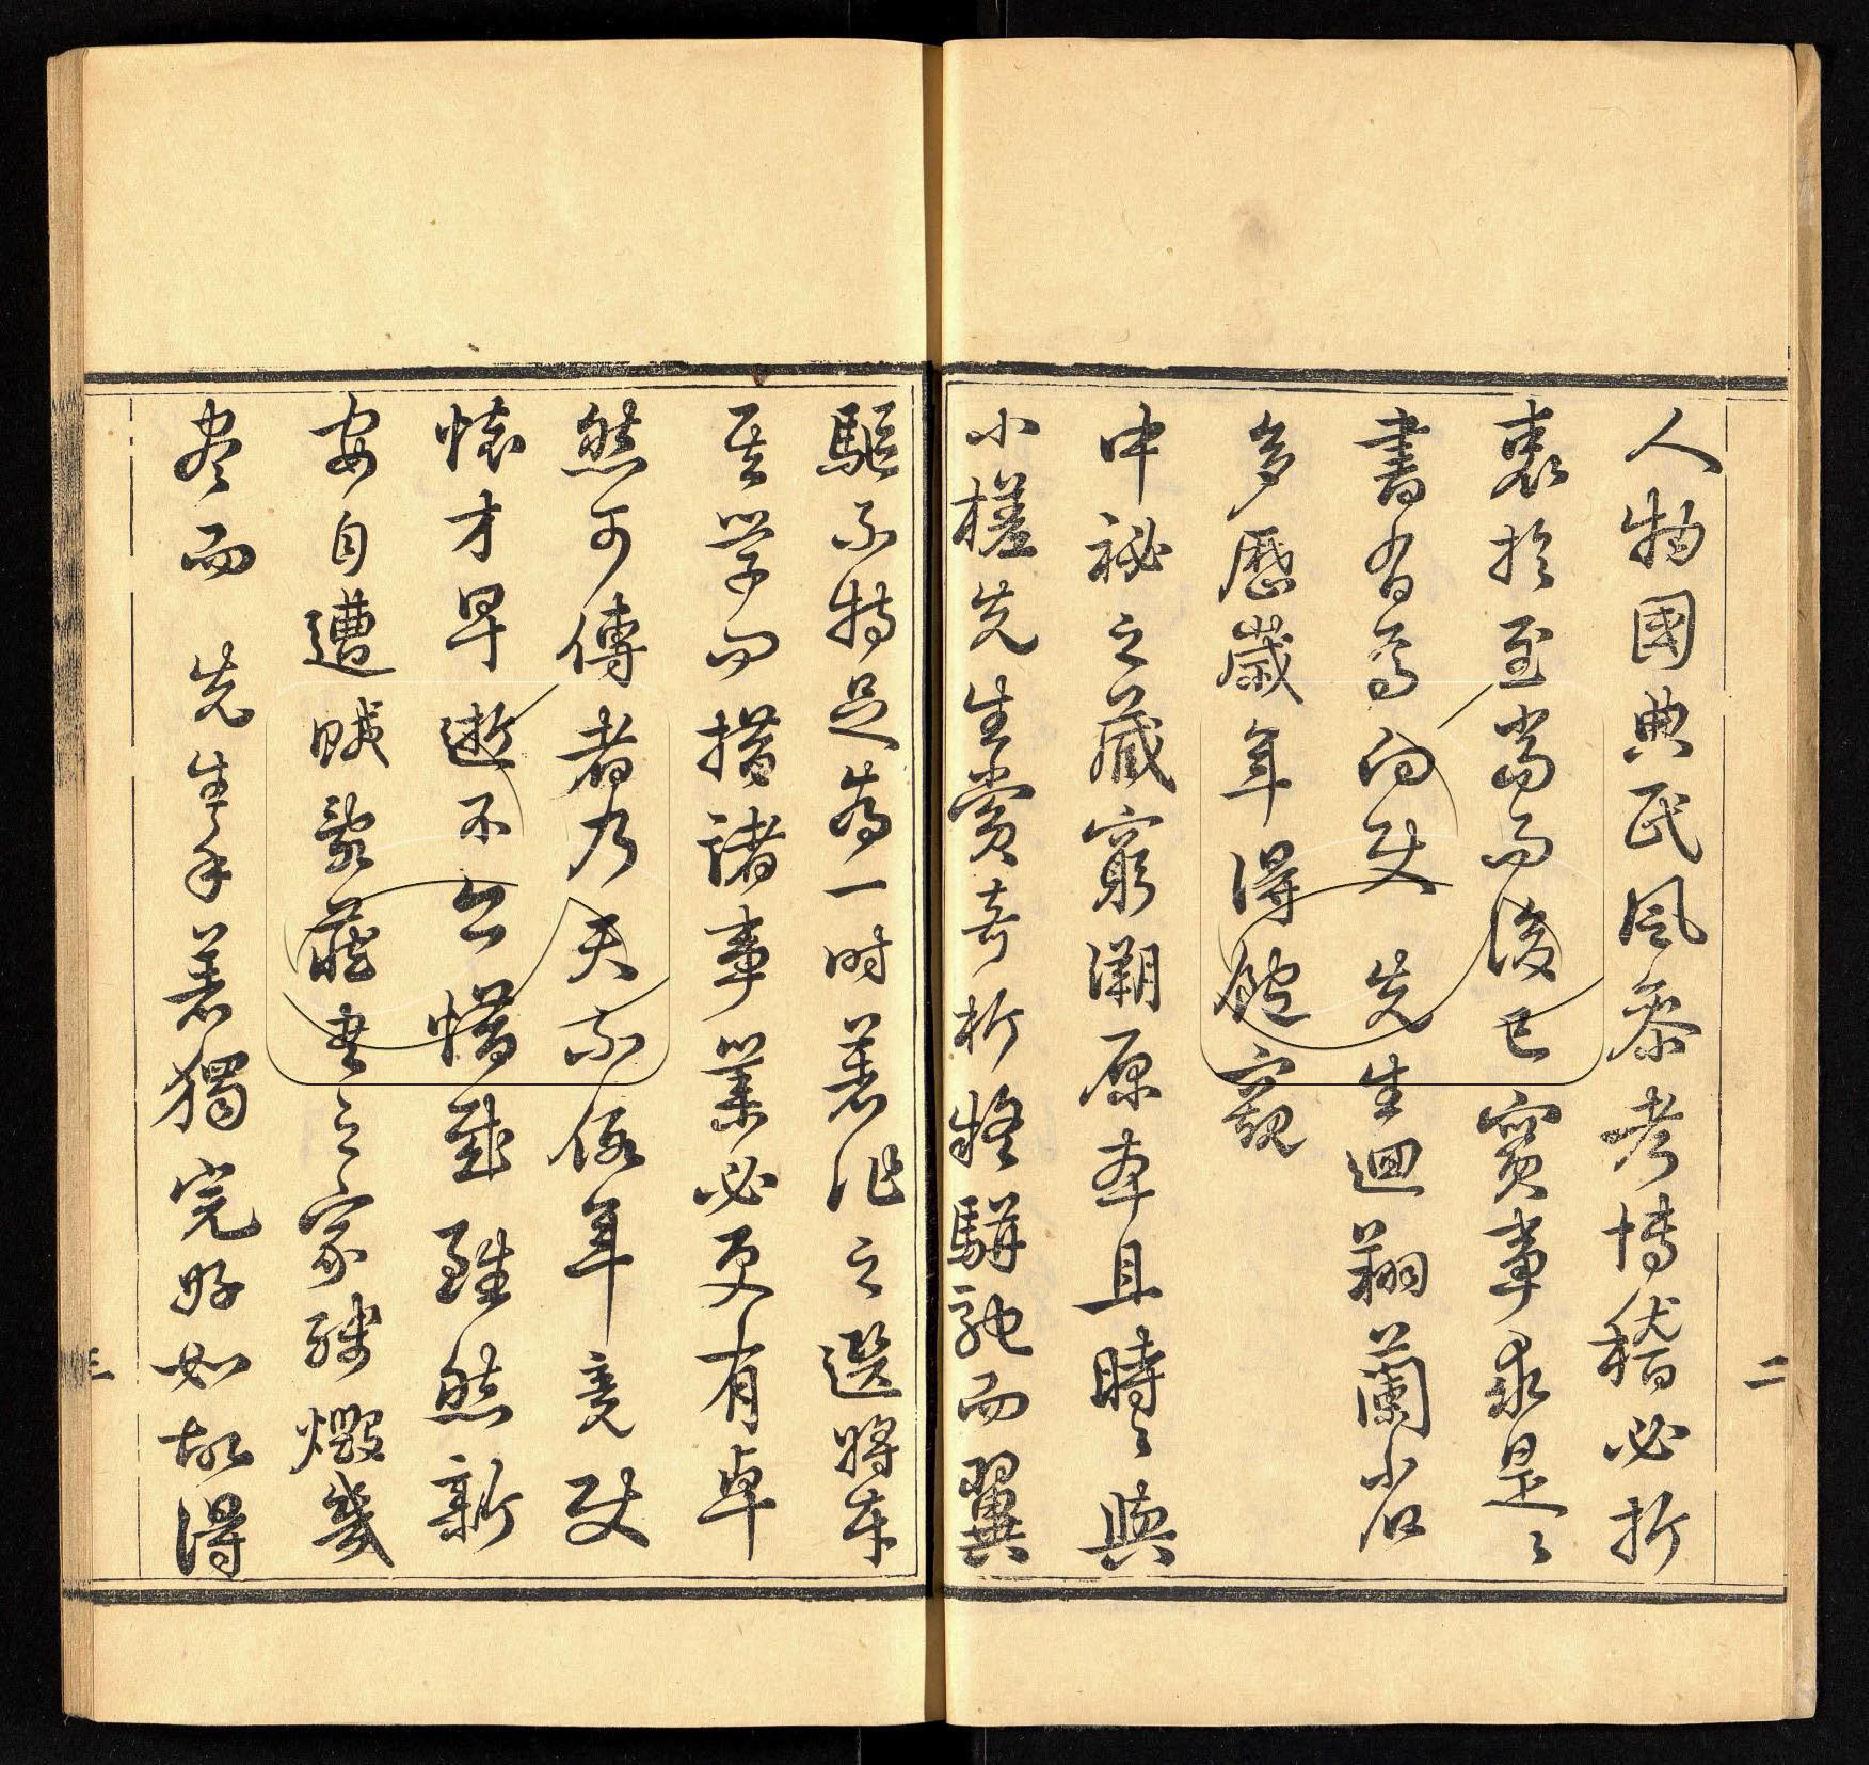 人物國典民風叅考博稽必折
衷於至當而後已實事求是之
書省為何如　先生迴翔蘭省
多歷歲年得縱窺
中祕之藏窮溯原本且時之與
小槎先生賞奇析疑騁馳而翼
驅不特足為一時著作之選將來
至學問措諸事業必更有卓
然可傳者乃天不假年竟使
懷才早逝不亦惜哉雖然新
安自遭賊氛藏書之家殘燬幾
盡而　先生手著獨完好如故得
二
三